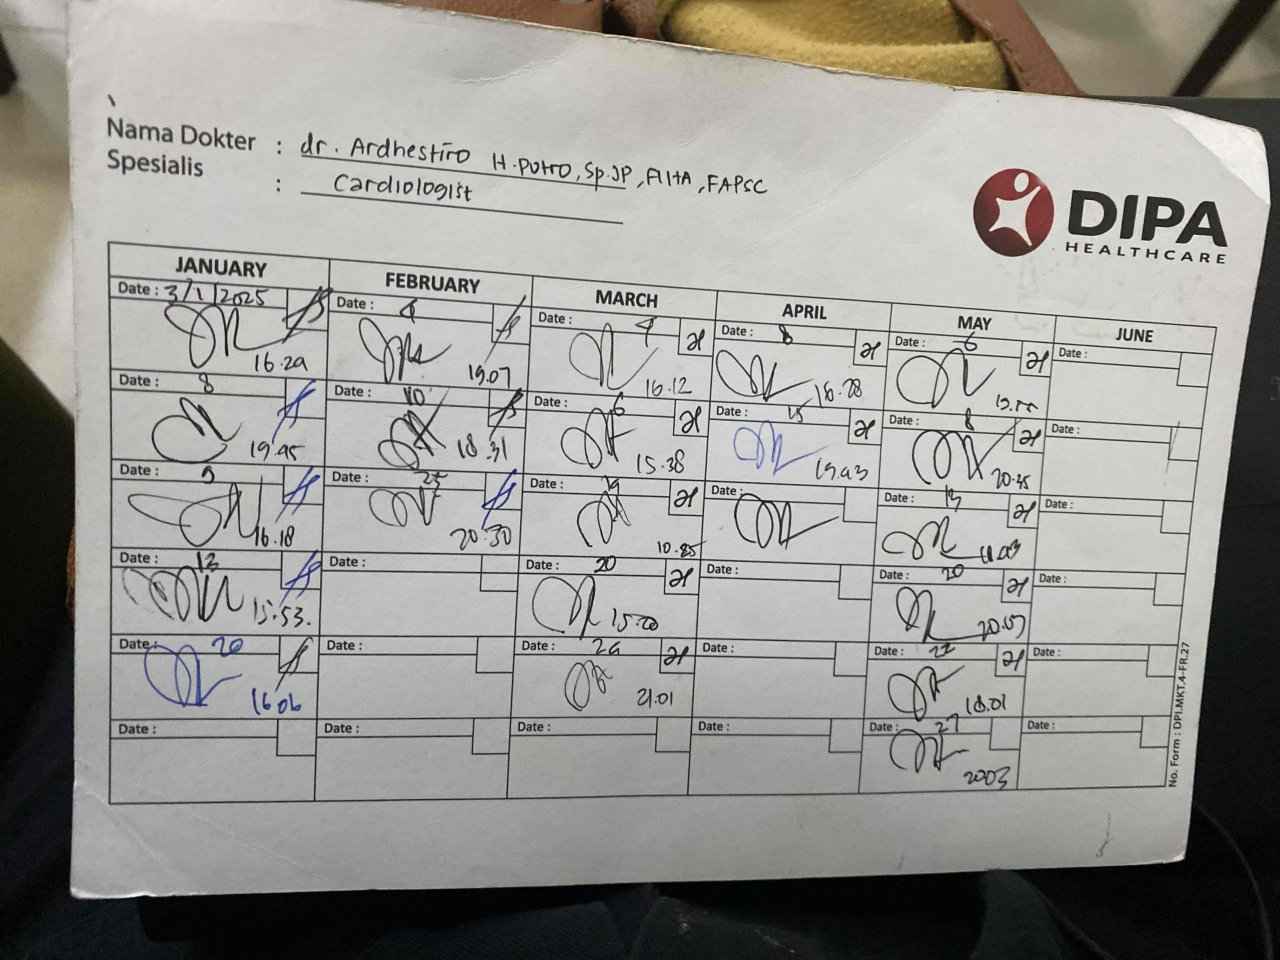 Nama Dokter : dr. Ardhestiro H. Putro, Sp.JP, FIHA, FAPSC
Spesialis : Cardiologist
DIPA
HEALTHCARE
JANUARY FEBRUARY MARCH APRIL MAY JUNE
Date : 3/1/2025 Date : 4 Date : 4 Date : 8 Date : 6 Date :
16.29 19.07 16.12 16.28
Date : 8 Date : 10 Date : 6 Date : 15 Date : 8 Date :
19.45 18.31 15.38 19.43 20.45
Date : 9 Date : 25 Date : Date : Date : 13 Date :
16.18 20.30
Date : 13 Date : Date : 20 Date : Date : 20 Date :
15.53. 15.00 20.07
Date : 20 Date : Date : 24 Date : Date : 22 Date :
16.06 21.01 18.01
Date : Date : Date : Date : Date : 27 Date :
2003
No. Form : DPI.MKT.4-FR.27